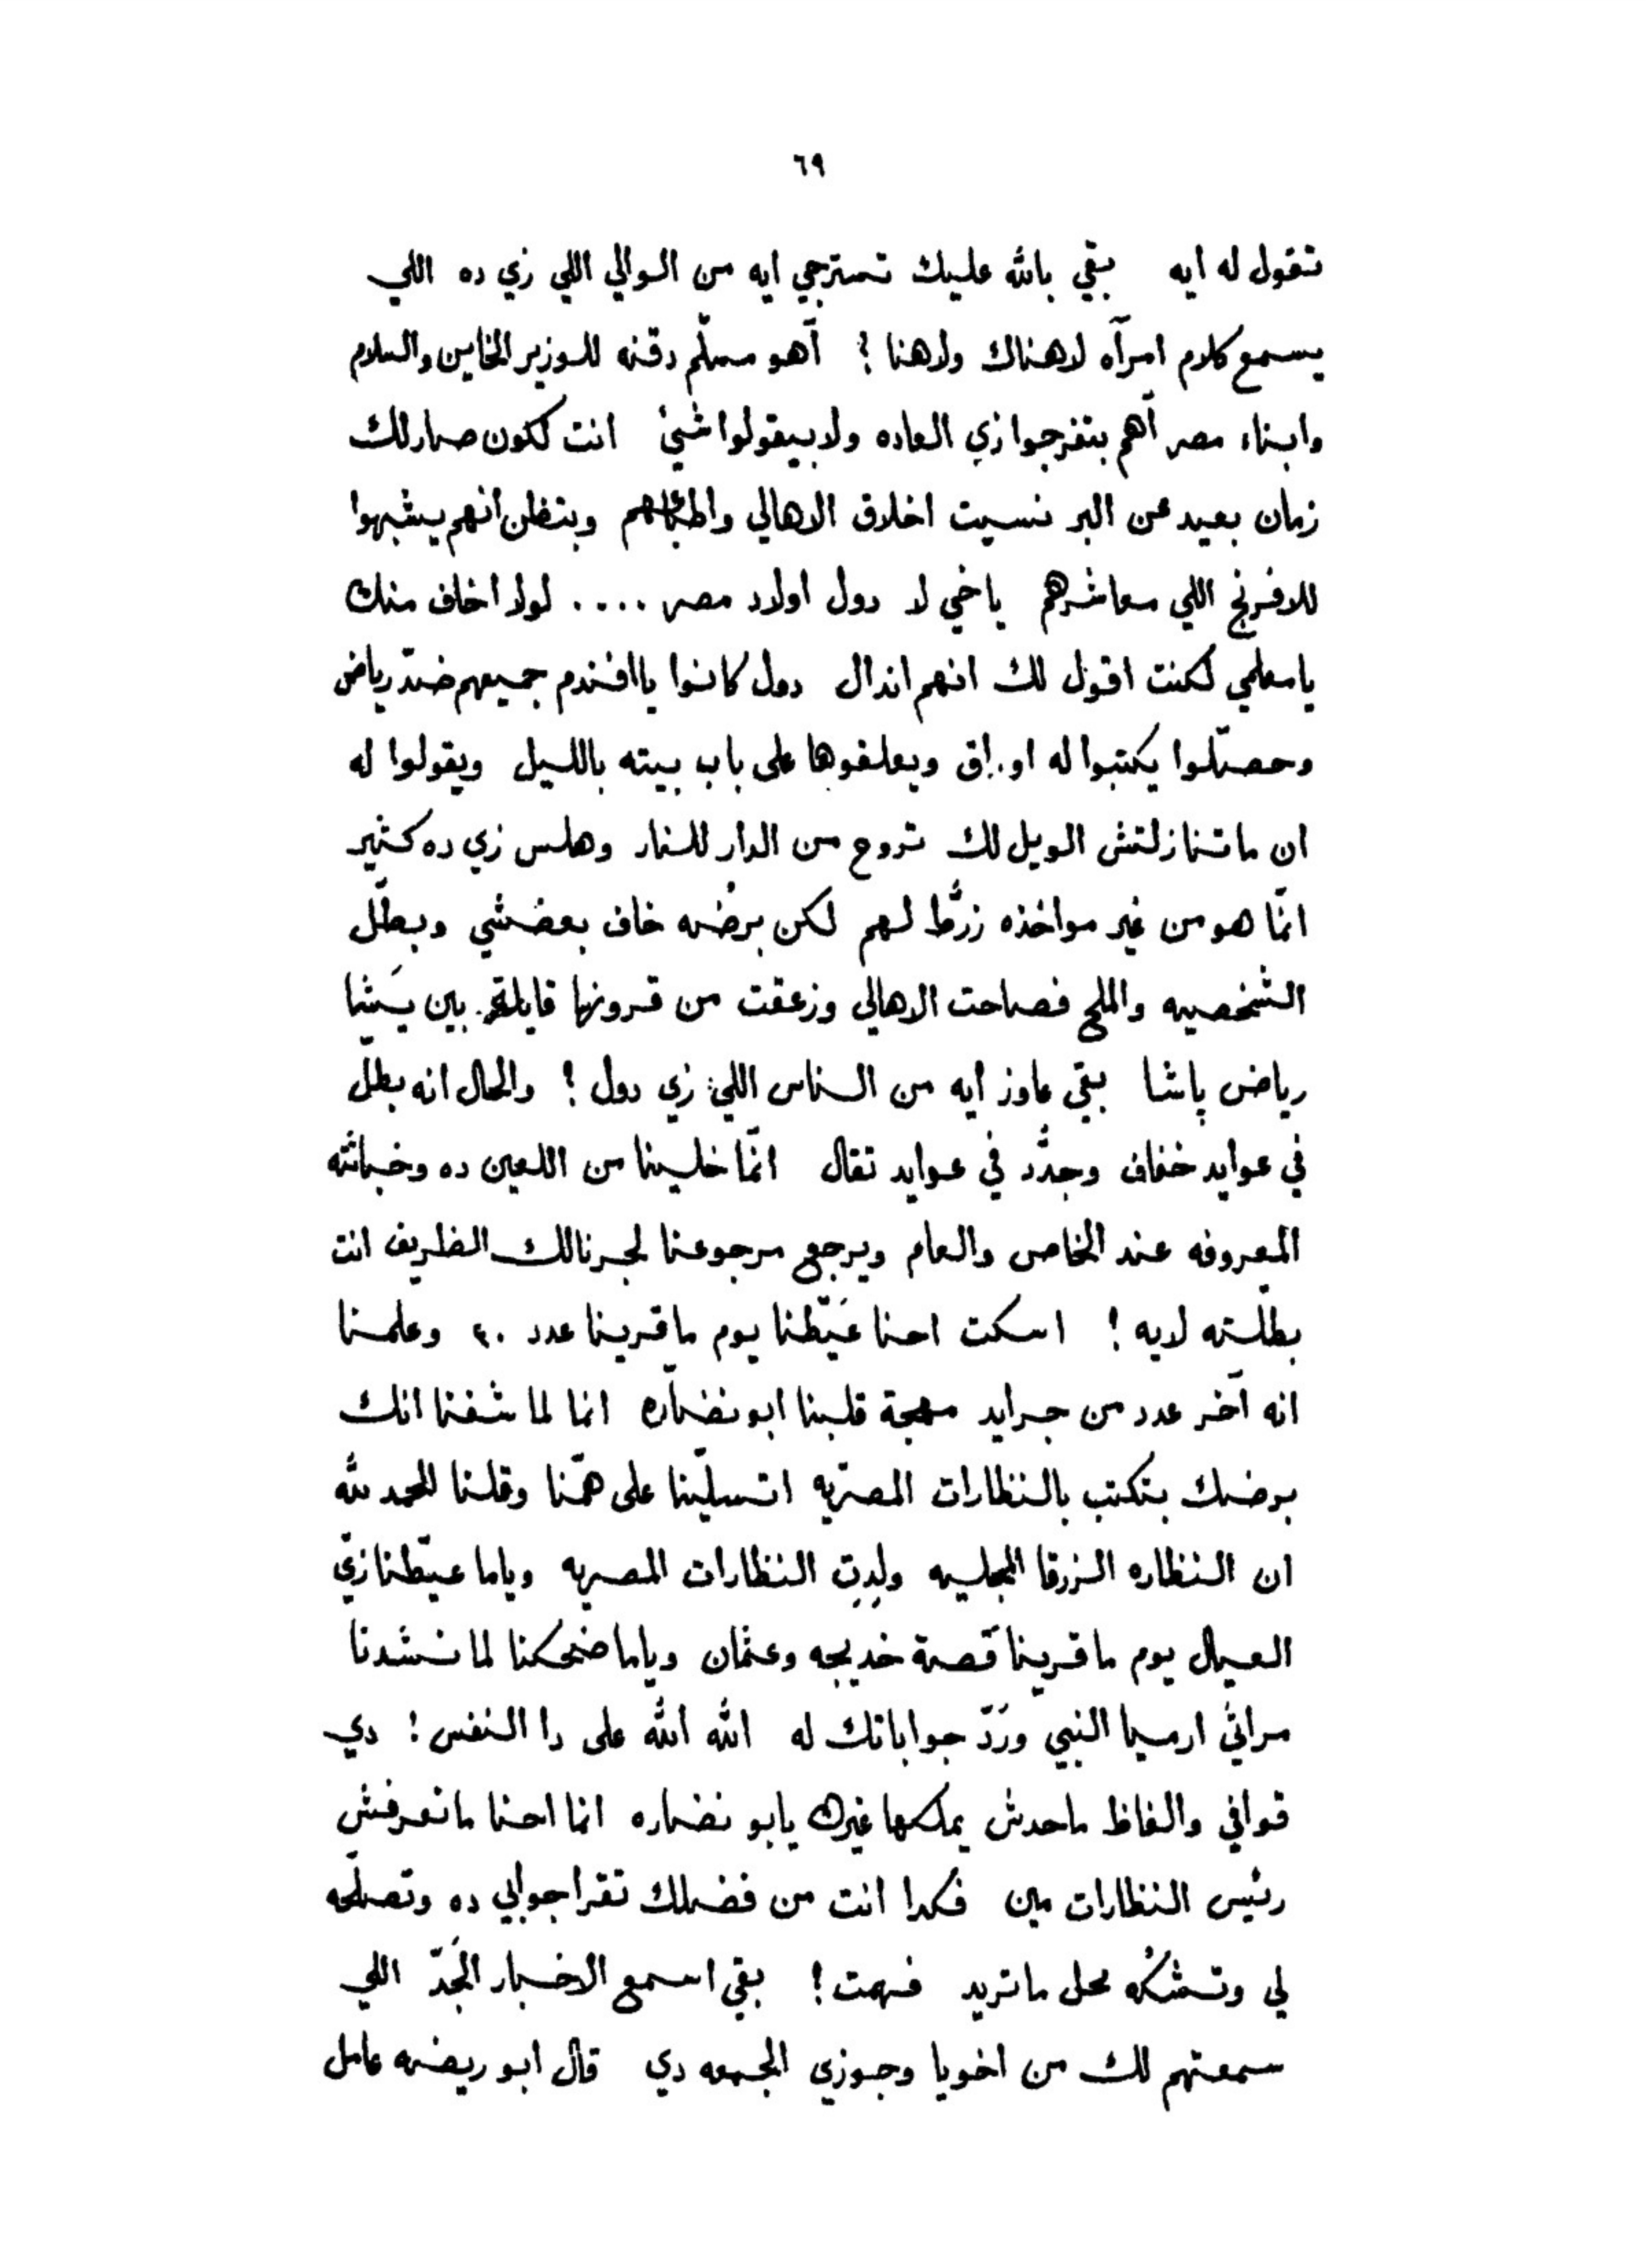 ٦٩
تقول له ايه بقي بالله عليك تسترجي ايه من الوالي اللي زي ده اللي
يسمع كلام امرآه لاهناك ولاهنا ؟ آهو مسلّم دقنه للوزير الخاين والسلام
وابناء مصر آهم بتفرجوا زي العاده ولا بيقولوا شيئ انت لكون صار لك
زمان بعيد عن البر نسيت اخلاق الاهالي وبتظن انهم يشبهوا
للافرنج اللي معاشرهم ياخي لا دول اولاد مصر .... لولا اخاف منك
يامعلمي لكنت اقول لك انهم اندال دول كانوا ياافندم جميعهم ضدّ رياض
وحصّلوا يكتبوا له اوراق ويعلقوها على باب بيته بالليل ويقولوا له
ان ماتنازلتش الويل لك تروح من الدار للنار وهلس زي ده كثير
انّما هو من غير مواخذه زرَّط لهم لكن برضه خاف بعضشي وبطّل
الشخصيه والملح فصاحت الاهالي وزعقت من قرونها قايلة بين يَشيا
رياض پاشا بقى عاوز ايه من الناس اللي زي دول ؟ والحال انه بطّل
في عوايد خفاف وجدَّد في عوايد تقال انّما خلينا من اللعين ده وخباثته
المعروفه عند الخاص والعام ويرجع مرجوعنا لجرنالك الظريف انت
بطّلته لايه ! اسكت احنا عَيّطنا يوم ماقرينا عدد ٣٠ وعلمنا
انه آخر عدد من جرايد مهجة قلبنا ابو نضّاره انما لما شفنا انك
برضك بتكتب بالنظارات المصريّه اتسلّينا على همّنا وقلنا الحمد لله
ان النظاره الزرقا المجليه ولدِت النظارات المصريه وياما عيّطنا زيّ
العيال يوم ماقرينا قصة خديجه وعثمان وياما ضحكنا لما نشدنا
مراثي ارميا النبي ورَدّ جواباتك له الله الله على دا النفس ! دي
قوافي والفاظ ماحدش يملكها غيرك يابو نضاره انما احنا مانعرفش
رئيس النظارات مين فكدا انت من فضلك تقرا جوابي ده وتصلّحه
لي وتمشكه محل ماتريد فهمت ! بقي اسمع الاخبار الجَدّ اللي
سمعتهم لك من اخويا وجوزي الجمعه دي قال ابو ريضه عامل